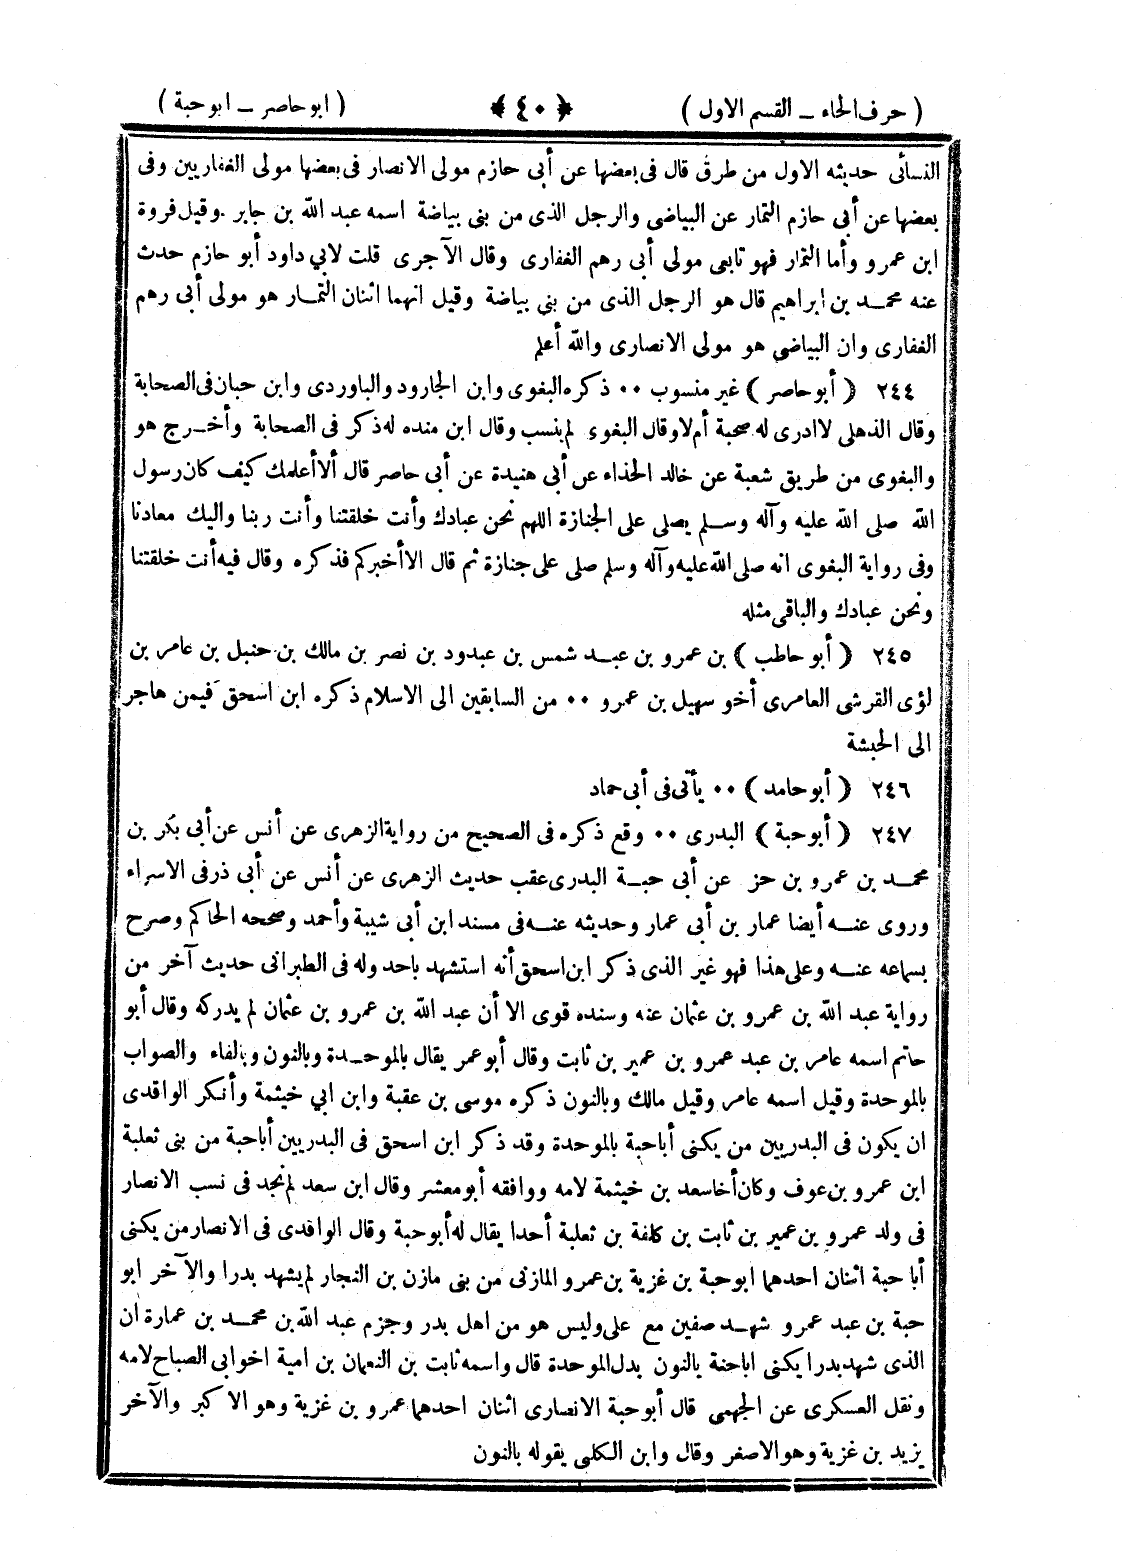 ( حرف الحاء ــ القسم الاول ) ﴿ ٤٠ ﴾ ( ابو حاصر ــ ابو حبة )
النسأئى حديثه الاول من طرق قال فى بعضها عن أبى حازم مولى الانصار فى بعضها مولى الغفاريين وفى
بعضها عن أبى حازم التمار عن البياضى والرجل الذى من بنى بياضة اسمه عبد الله بن جابر . وقيل فروة
ابن عمرو وأما التمار فهو تابعى مولى أبى رهم الغفارى وقال الآجرى قلت لابي داود أبو حازم حدث
عنه محمد بن ابراهيم قال هو الرجل الذى من بنى بياضة وقيل انهما اثنان التمار هو مولى أبى رهم
الغفارى وان البياضى هو مولى الانصارى والله أعلم
٢٤٤ ( أبو حاصر ) غير منسوب ٠٠ ذكره البغوى وابن الجارود والباوردى وابن حبان فى الصحابة
وقال الذهلى لا ادرى له صحبة أم لا وقال البغوء لم ينسب وقال ابن منده له ذكر فى الصحابة وأخرج هو
والبغوى من طريق شعبة عن خالد الحذاء عن أبى هنيدة عن أبى حاصر قال ألا أعلمك كيف كان رسول
الله صلى الله عليه وآله وسلم يصلى على الجنازة اللهم نحن عبادك وأنت خلقتنا وأنت ربنا واليك معادنا
وفى رواية البغوى انه صلى الله عليه وآله وسلم صلى على جنازة ثم قال الا أخبركم فذكره وقال فيه أنت خلقتنا
ونحن عبادك والباقى مثله
٢٤٥ ( أبو حاطب ) بن عمرو بن عبد شمس بن عبدود بن نصر بن مالك بن حنبل بن عامر بن
لؤى القرشى العامرى أخو سهيل بن عمرو ٠٠ من السابقين الى الاسلام ذكره ابن اسحق فيمن هاجر
الى الحبشة
٢٤٦ ( أبو حامد ) ٠٠ يأتى فى أبى حماد
٢٤٧ ( أبو حبة ) البدرى ٠٠ وقع ذكره فى الصحيح من رواية الزهرى عن أنس عن أبى بكر بن
محمد بن عمرو بن حز عن أبى حبة البدرى عقب حديث الزهرى عن أنس عن أبى ذر فى الاسراء
وروى عنه أيضا عمار بن أبى عمار وحديثه عنه فى مسند ابن أبى شيبة وأحمد وصححه الحاكم وصرح
بسماعه عنه وعلى هذا فهو غير الذى ذكر ابن اسحق أنه استشهد باحد وله فى الطبرانى حديث آخر من
رواية عبد الله بن عمرو بن عثمان عنه وسنده قوى الا أن عبد الله بن عمرو بن عثمان لم يدركه وقال أبو
حاتم اسمه عامر بن عبد عمرو بن عمير بن ثابت وقال أبو عمر يقال بالموحدة وبالنون وبالفاء والصواب
بالموحدة وقيل اسمه عامر وقيل مالك وبالنون ذكره موسى بن عقبة وابن ابي خيثمة وأنكر الواقدى
ان يكون فى البدريين من يكنى أبا حبة بالموحدة وقد ذكر ابن اسحق فى البدريين أبا حبة من بنى ثعلبة
ابن عمرو بن عوف وكان أخا سعد بن خيثمة لامه ووافقه أبو معشر وقال ابن سعد لم نجد فى نسب الانصار
فى ولد عمرو بن عمير بن ثابت بن كلفة بن ثعلبة أحدا يقال له أبو حبة وقال الواقدى فى الانصار من يكنى
أبا حبة اثنان احدهما ابو حبة بن غزية بن عمرو المازنى من بنى مازن بن النجار لم يشهد بدرا والآخر ابو
حبة بن عبد عمرو شهد صفين مع على وليس هو من اهل بدر وجزم عبد الله بن محمد بن عمارة ان
الذى شهد بدرا يكنى اباحنة بالنون بدل الموحدة قال واسمه ثابت بن النعمان بن امية اخو ابى الصباح لامه
ونقل العسكرى عن الجهمى قال أبو حبة الانصارى اثنان احدهما عمرو بن غزية وهو الاكبر والآخر
يزيد بن غزية وهو الاصغر وقال وابن الكلبى يقوله بالنون